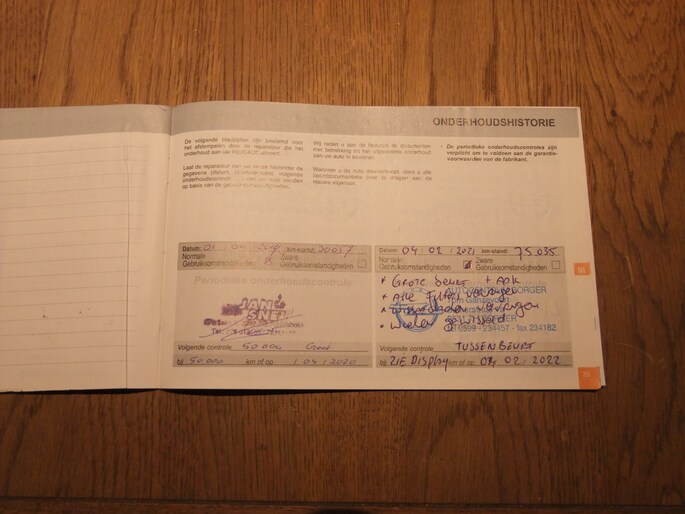 ONDERHOUDSHISTORIE
De volgende bladzijden zijn bestemd voor
het afstempelen door de reparateur die het
onderhoud aan uw PEUGEOT uitvoert.
Laat de reparateur van uw keuze hieronder de
gegevens (datum, kilometerstand volgende
onderhoudscontrole
op basis van de gebruiksomstandigheden.
Wij raden u aan de facturen te
met betrekking tot het uitgevoerde onderhoud
aan uw auto te bewaren.
Wanneer u de auto doorverkoopt, dient u alle
over te dragen aan de
nieuwe eigenaar.
• De periodieke onderhoudscontroles zijn
verplicht om te voldoen aan de garantie-
voorwaarden van de fabrikant.
Datum: km-stand:
Normale Zware
Gebruiksomstandigheden Gebruiksomstandigheden
Periodieke onderhoudscontrole
JAN
SNEL
Volgende controle 50.000 Groot
bij 50.000 km of op 1 04 2020
Datum: 04 02 2021 km-stand: 75.035
Normale Zware
Gebruiksomstandigheden Gebruiksomstandigheden
* Grote beurt + APK
* Alle Filters vervangen
vervangen
* Wielen gewisseld
0599 - 234457 - fax 234182
Volgende controle TUSSENBEURT
bij ZIE DISPLAY km of op 04 02 2022